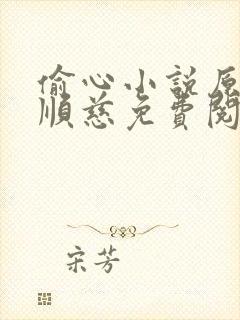 偷心小說原
順慈免費閱
宋芳